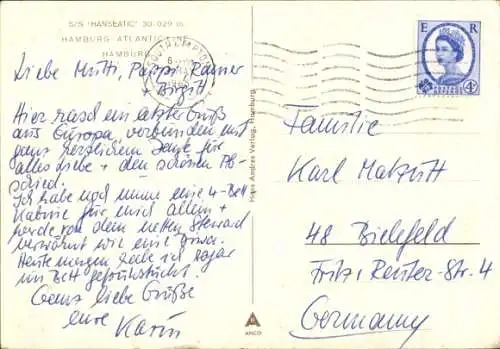 S/S "HANSEATIC" 30.029 to.
HAMBURG ATLANTIC LINE
HAMBURG
Liebe Mutti, Pappi, Rainer
+ Birgit
Hier rasch ein letzter Gruß
aus Europa verbunden mit
ganz herzlichem Dank für
alles Liebe + den schönen Ab-
schied.
Ich habe noch immer eine 4-Bett
Kabine für mich allein +
werde von dem netten Steward
verwöhnt wie eine
Heute morgen habe ich sogar
im Bett gefrühstückt.
Ganz liebe Grüße
eure Karin
Hans Andres Verlag, Hamburg
ANCO
SOUTHAMPTON
E R
4D
Familie
Karl
48 Bielefeld
Fritz, Reuter-Str. 4
Germany